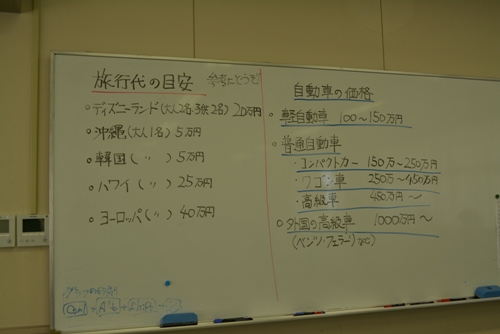 旅行代の目安 参考にどうぞ
ディズニーランド(大人2名・子供2名) 20万円
沖縄(大人1名) 5万円
韓国( 〃 ) 5万円
ハワイ( 〃 ) 25万円
ヨーロッパ( 〃 ) 40万円
自動車の価格
軽自動車 100〜150万円
普通自動車
・コンパクトカー 150万〜250万円
・ワゴン車 250万〜450万円
・高級車 450万円〜
外国の高級車 1000万円〜
(ベンツ・フェラーリ など)